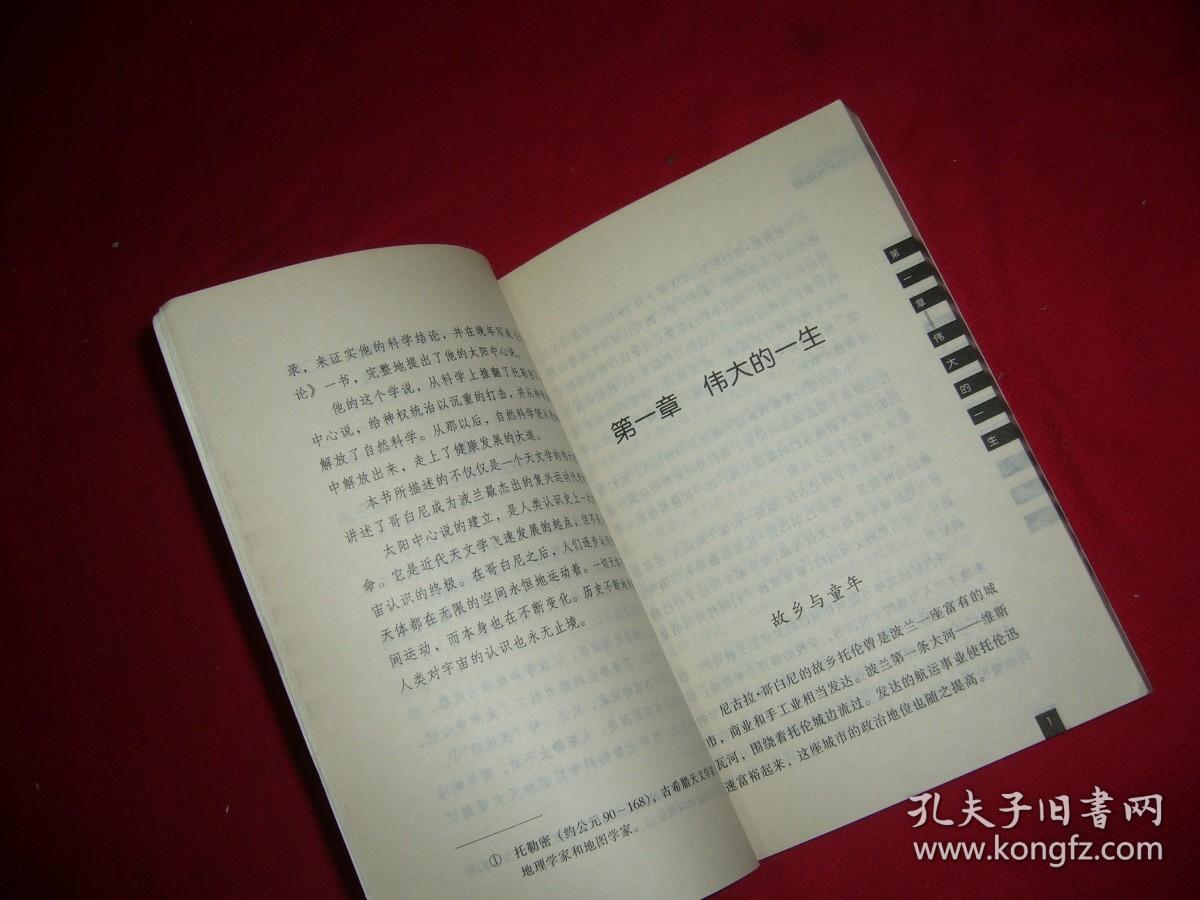 录，来证实他的科学结论，并在晚年写成
论》一书，完整地提出了他的太阳中心说。
他的这个学说，从科学上推翻了托勒密
中心说，给神权统治以沉重的打击，并从神
解放了自然科学。从那以后，自然科学便从
中解放出来，走上了健康发展的大道。
本书所描述的不仅仅是一个天文学的伟
讲述了哥白尼成为波兰最杰出的复兴运动代
太阳中心说的建立，是人类认识史上一
命。它是近代天文学飞速发展的起点，但不
宙认识的终极。在哥白尼之后，人们逐步认
天体都在无限的空间永恒地运动着。一切天
间运动，而本身也在不断变化。历史不断地
人类对宇宙的认识也永无止境。
① 托勒密（约公元90~168），古希腊天文学家
地理学家和地图学家。
第一章 伟大的一生
故乡与童年
尼古拉·哥白尼的故乡托伦曾是波兰一座富有的城
市，商业和手工业相当发达。波兰第一条大河——维斯
瓦河，围绕着托伦城边流过。发达的航运事业使托伦迅
速富裕起来，这座城市的政治地位也随之提高。
第一章 伟大的一生
1
孔夫子旧書网
www.kongfz.com